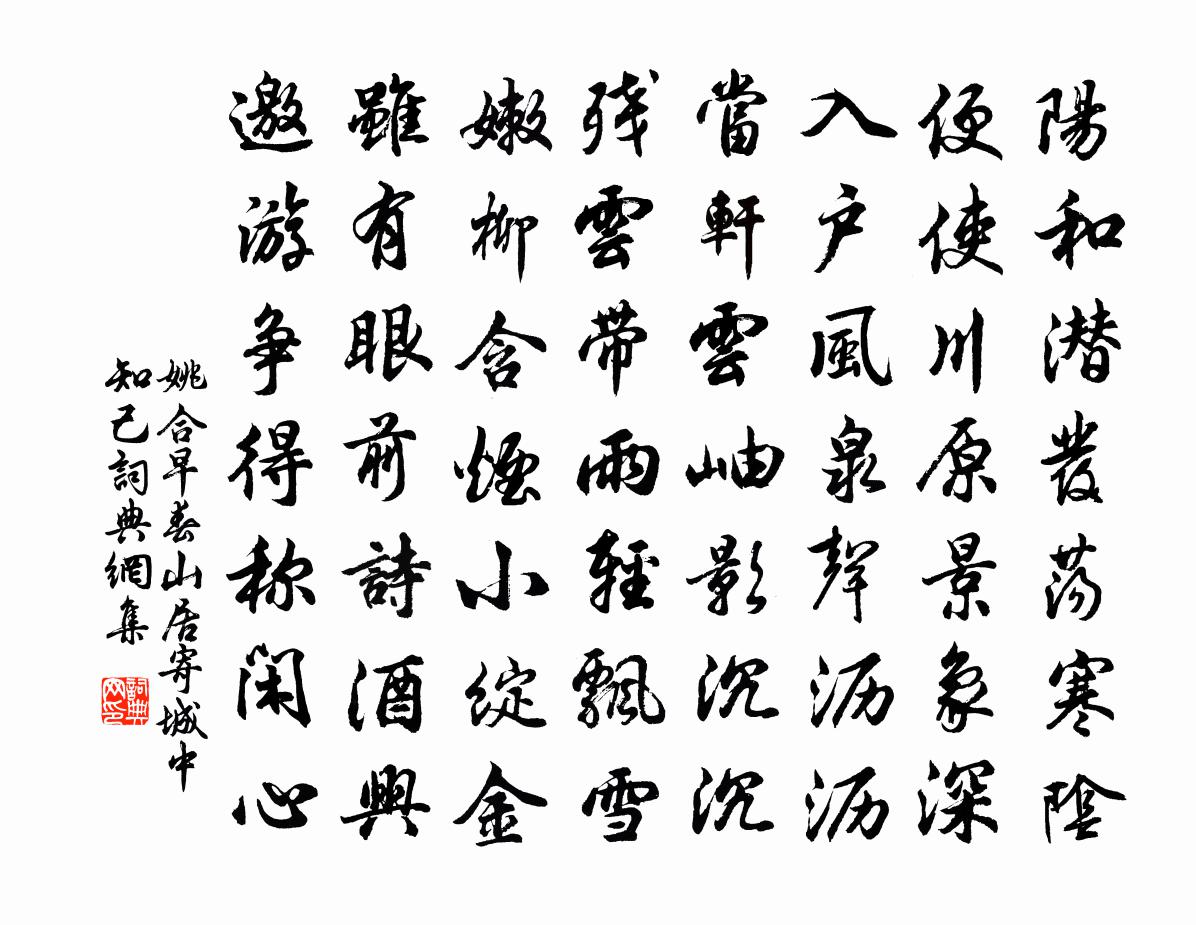 陽和潛發蕩寒陰
便使川原景象深
入戶風泉聲瀝瀝
當軒雲岫影沉沉
殘雲帶雨輕飄雪
嫩柳含煙小綻金
雖有眼前詩酒興
邀游爭得稱閑心
姚合早春山居寄城中
知己詞典網集
詞典
网印